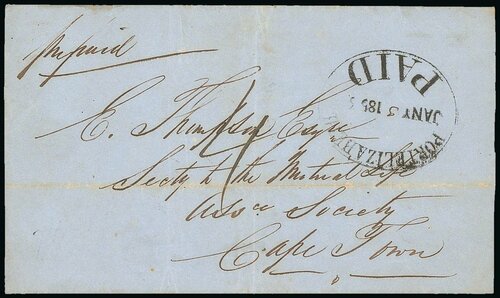 Prepaid
PAID
JANY 5 185
PORT ELIZAB
E. Thompson Esqre
Secty to the Mutual Life
Assce Society
Cape Town